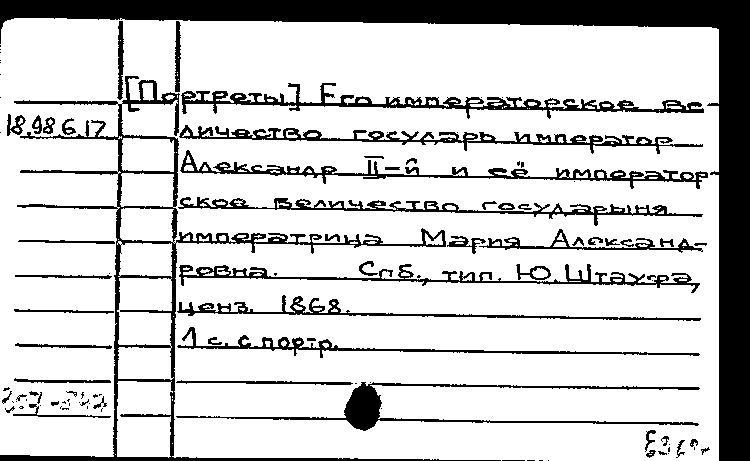 [Портреты] Его императорское ве-
18.98.6.17 личество государь император
Александр II-й и её император-
ское величество государыня
императрица Мария Александ-
ровна. Спб., тип. Ю. Штауфа,
ценз. 1868.
1 с. с портр.